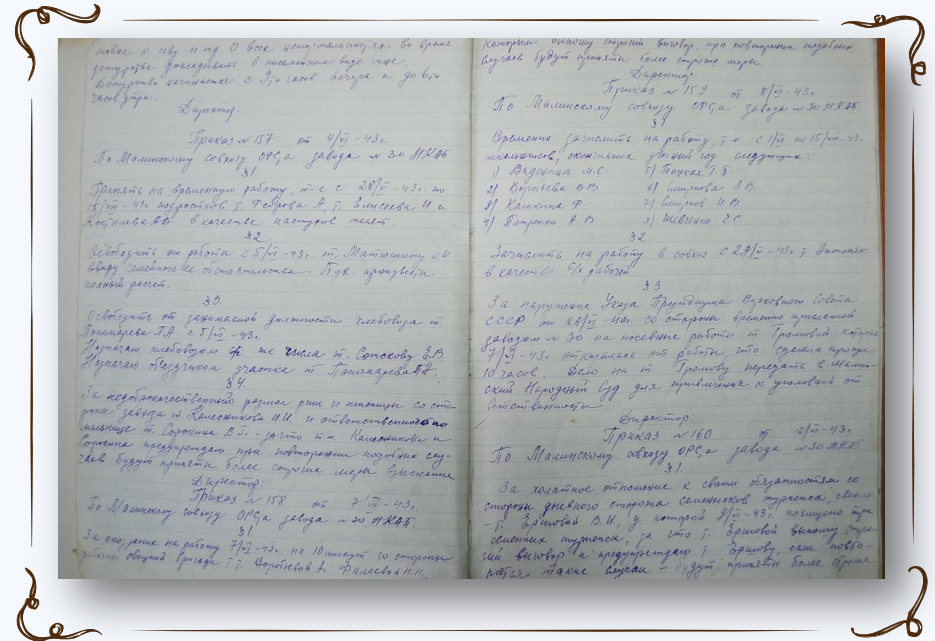 товке к севу и т.д. О всех ненормальностях во время
дежурства докладывать в письменном виде мне.
Дежурства начинаются с 9ти часов вечера и до 6ти
часов утра.
Директор:
Приказ № 157 от 4/VI-43г.
По Малинскому совхозу ОРС,а завода № 30 НКАП
§1
Принять на временную работу, т-е с 28/V-43г. по
15/VI-43г. подростков т. Феброва А, т. Елисеева Н и
в качестве пастухов телят.
§2
Освободить от работы с 5/VI-43г. т. Матюшину
ввиду семейного обстоятельства. Бух. произвести
полный расчет.
§3.
Освободить от занимаемой должности хлебовоза т.
Пономарева П.А. с 5/VI-43г.
Назначаю хлебовозом с же числа т. Е.В.
Назначаю объездчиком участка т Пономарева П.А.
§4.
За недоброкачественный размол ржи и пшеницы со сто-
роны завода т Колесникова И.И. и ответственного по
мельнице т. Сорокина В.Г. - за что т.т. Колесникова и
Сорокина предупреждаю при повторении подобных слу-
чаев будут приняты более строгие меры взыскания
Директор:
Приказ № 158 от 7/VI-43г.
По Малинскому совхозу ОРС,а завода № 30 НКАП.
§1
За опоздание на работу 7/VI-43г. на 10 минут со стороны
овощной бригады т.т. Воротьевой А Фалеевой Н.Н.
которым объявляю строгий выговор, при повторении подобных
случаев будут приняты более строгие меры.
Директор:
Приказ № 159 от 8/VI-43г.
По Малинскому совхозу ОРС,а завода № 30 НКАП.
§1
Временно зачислить на работу, т.е. с 1/VI по 15/VI-43г.
школьников, окончивших учебный год следующих:
1) М.С. 5) Т.П
2) Воробьева В.В 6) Смирнова Л.В.
3) Калкина Ф 7) Смирнов Н.В
4) Петренко А.В. 8) Шевченко Г.С
§2
Зачислить на работу в совхоз с 29/V-43г. т
в качестве с/х рабочей
§3
За нарушение Указа Президиума Верховного Совета
СССР от 26/VI-40г. со стороны временно присланной
заводом № 30 на посевные работы т Громовой, которая
7/VI-43г. отказалась от работы, что сделала прогул
10 часов. Дело на т. Громову передать в Малин-
ский Народный Суд для привлечения к уголовной от-
ветственности.
Директор:
Приказ № 160 от 12/VI-43г.
По Малинскому совхозу ОРС,а завода № 30 НКАП
§1.
За халатное отношение к своим обязанностям со
стороны дневного сторожа семенников турнепса,
-т. Ершовой В.И., у которой 9/VI-43г. похищено три
семенных турнепса, за что т. Ершовой выношу стро-
гий выговор и предупреждаю т. Ершову, если повто-
рятся такие случаи - будут приняты более строгие